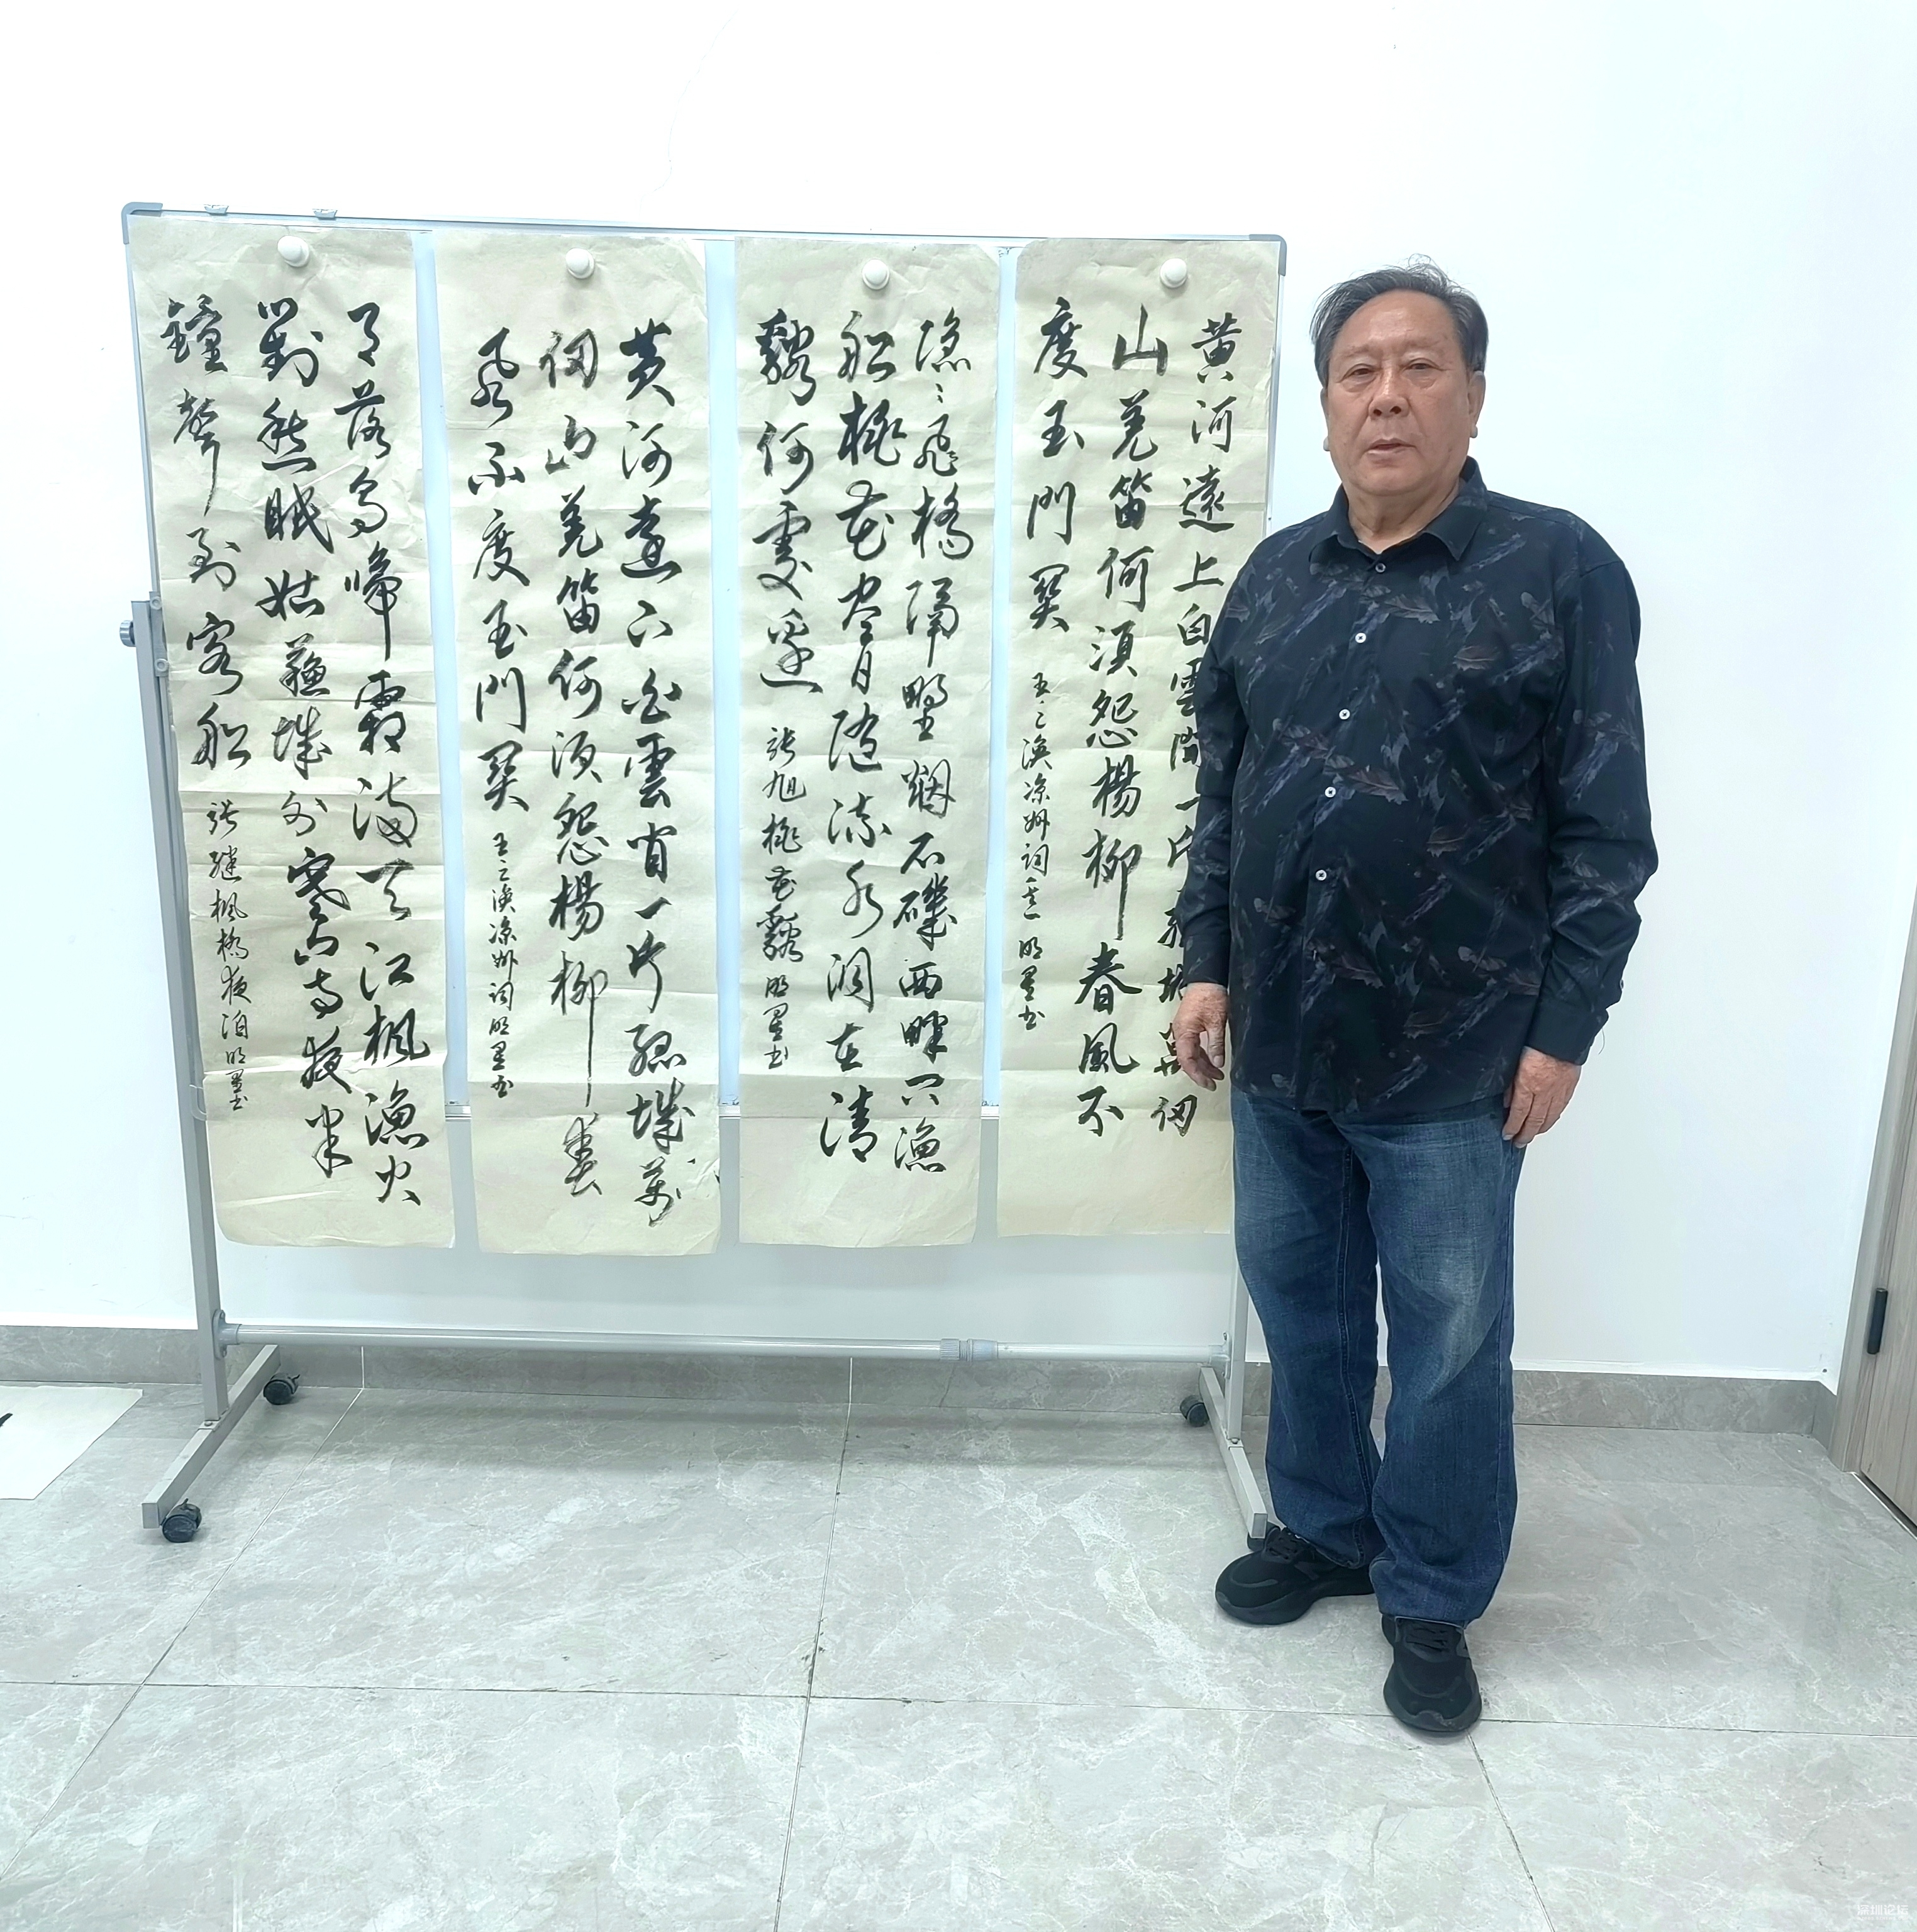 黄河遠上白雲間一片孤城萬仞
山羌笛何須怨楊柳春風不
度玉門関
王之渙凉州詞其一 明星书
隐〻飛橋隔野烟石磯西畔问漁
船桃花尽日随流水洞在清
谿何處邊
张旭桃花谿 明星书
黄河遠上白雲间一片孤城萬
仞山羌笛何須怨楊柳春
風不度玉門関
王之渙凉州词明星书
月落烏啼霜满天江楓漁火
對愁眠姑蘇城外寒山寺夜半
鐘聲到客船
张继楓橋夜泊明星书
深圳论坛